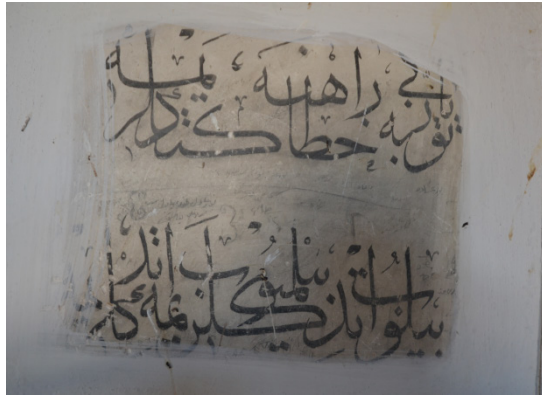 توبه يا ربي خطا راهنه كتدكلريمه
بيلوب اتدكلريمه بيلميوب اتدكلريمه